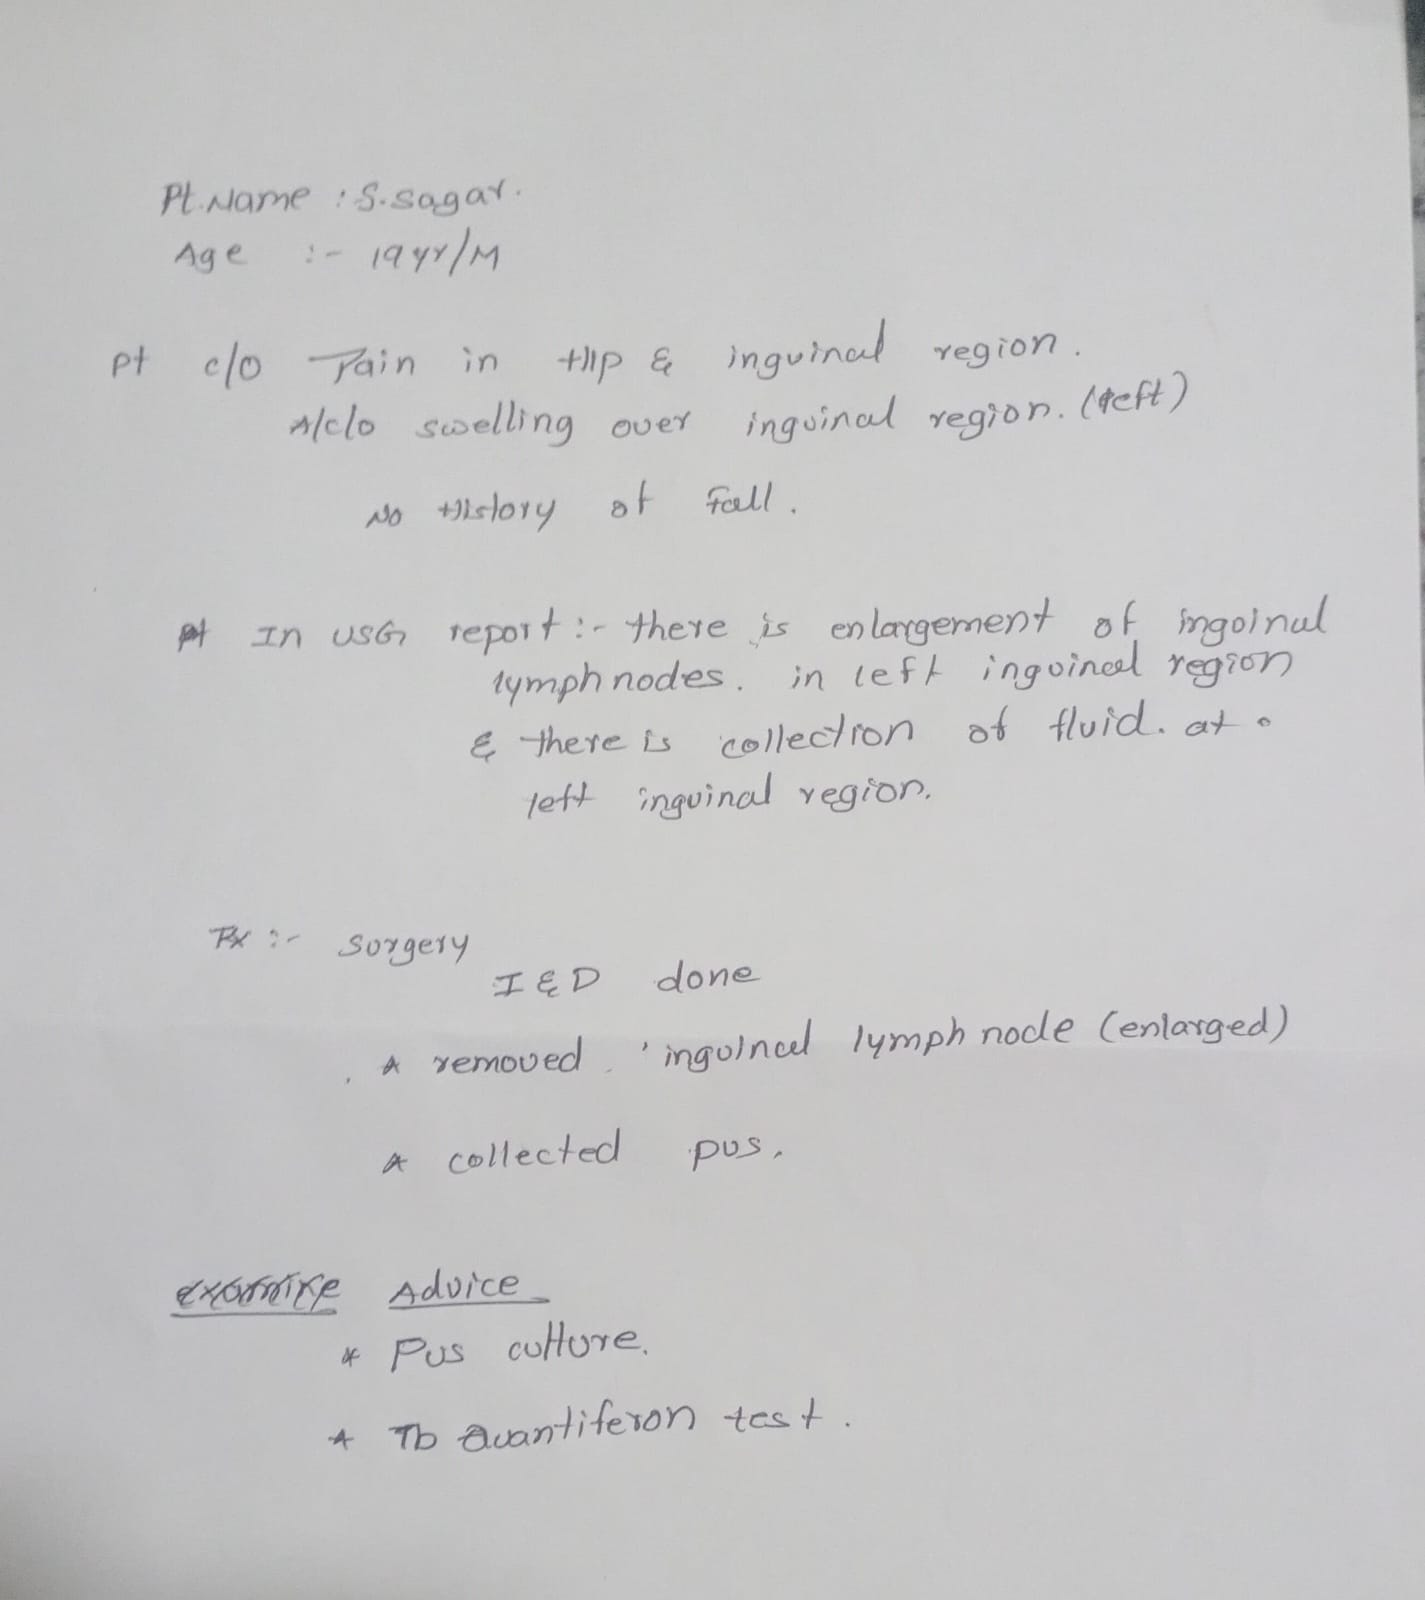 Pt.Name : S.sagar.
Age :- 19yr/M
pt c/o Pain in Hip & inguinal region.
A/c/o swelling over inguinal region. (left)
No History of Fall.
pt In USG report :- there is enlargement of ingoinal
lymph nodes. in left ingoinal region
& there is collection of fluid. at
left inguinal region.
Rx :- Surgery
I & D done
* removed inguinal lymph node (enlarged)
* collected pus.
Advice
* Pus culture.
* Tb Quantiferon test.